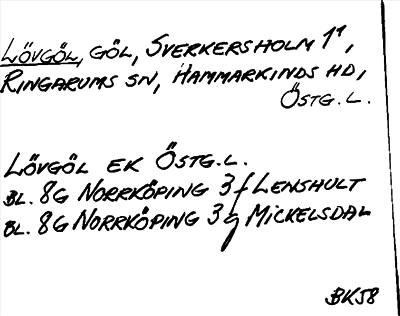 LÖVGÖL, GÖL, SVERKERSHOLM 1¹,
RINGARUMS SN, HAMMARKINDS HD,
ÖSTG. L.
LÖVGÖL EK ÖSTG. L.
BL. 8G NORRKÖPING 3f LENSHULT
BL. 8G NORRKÖPING 3g MICKELSDAL
BKJ8